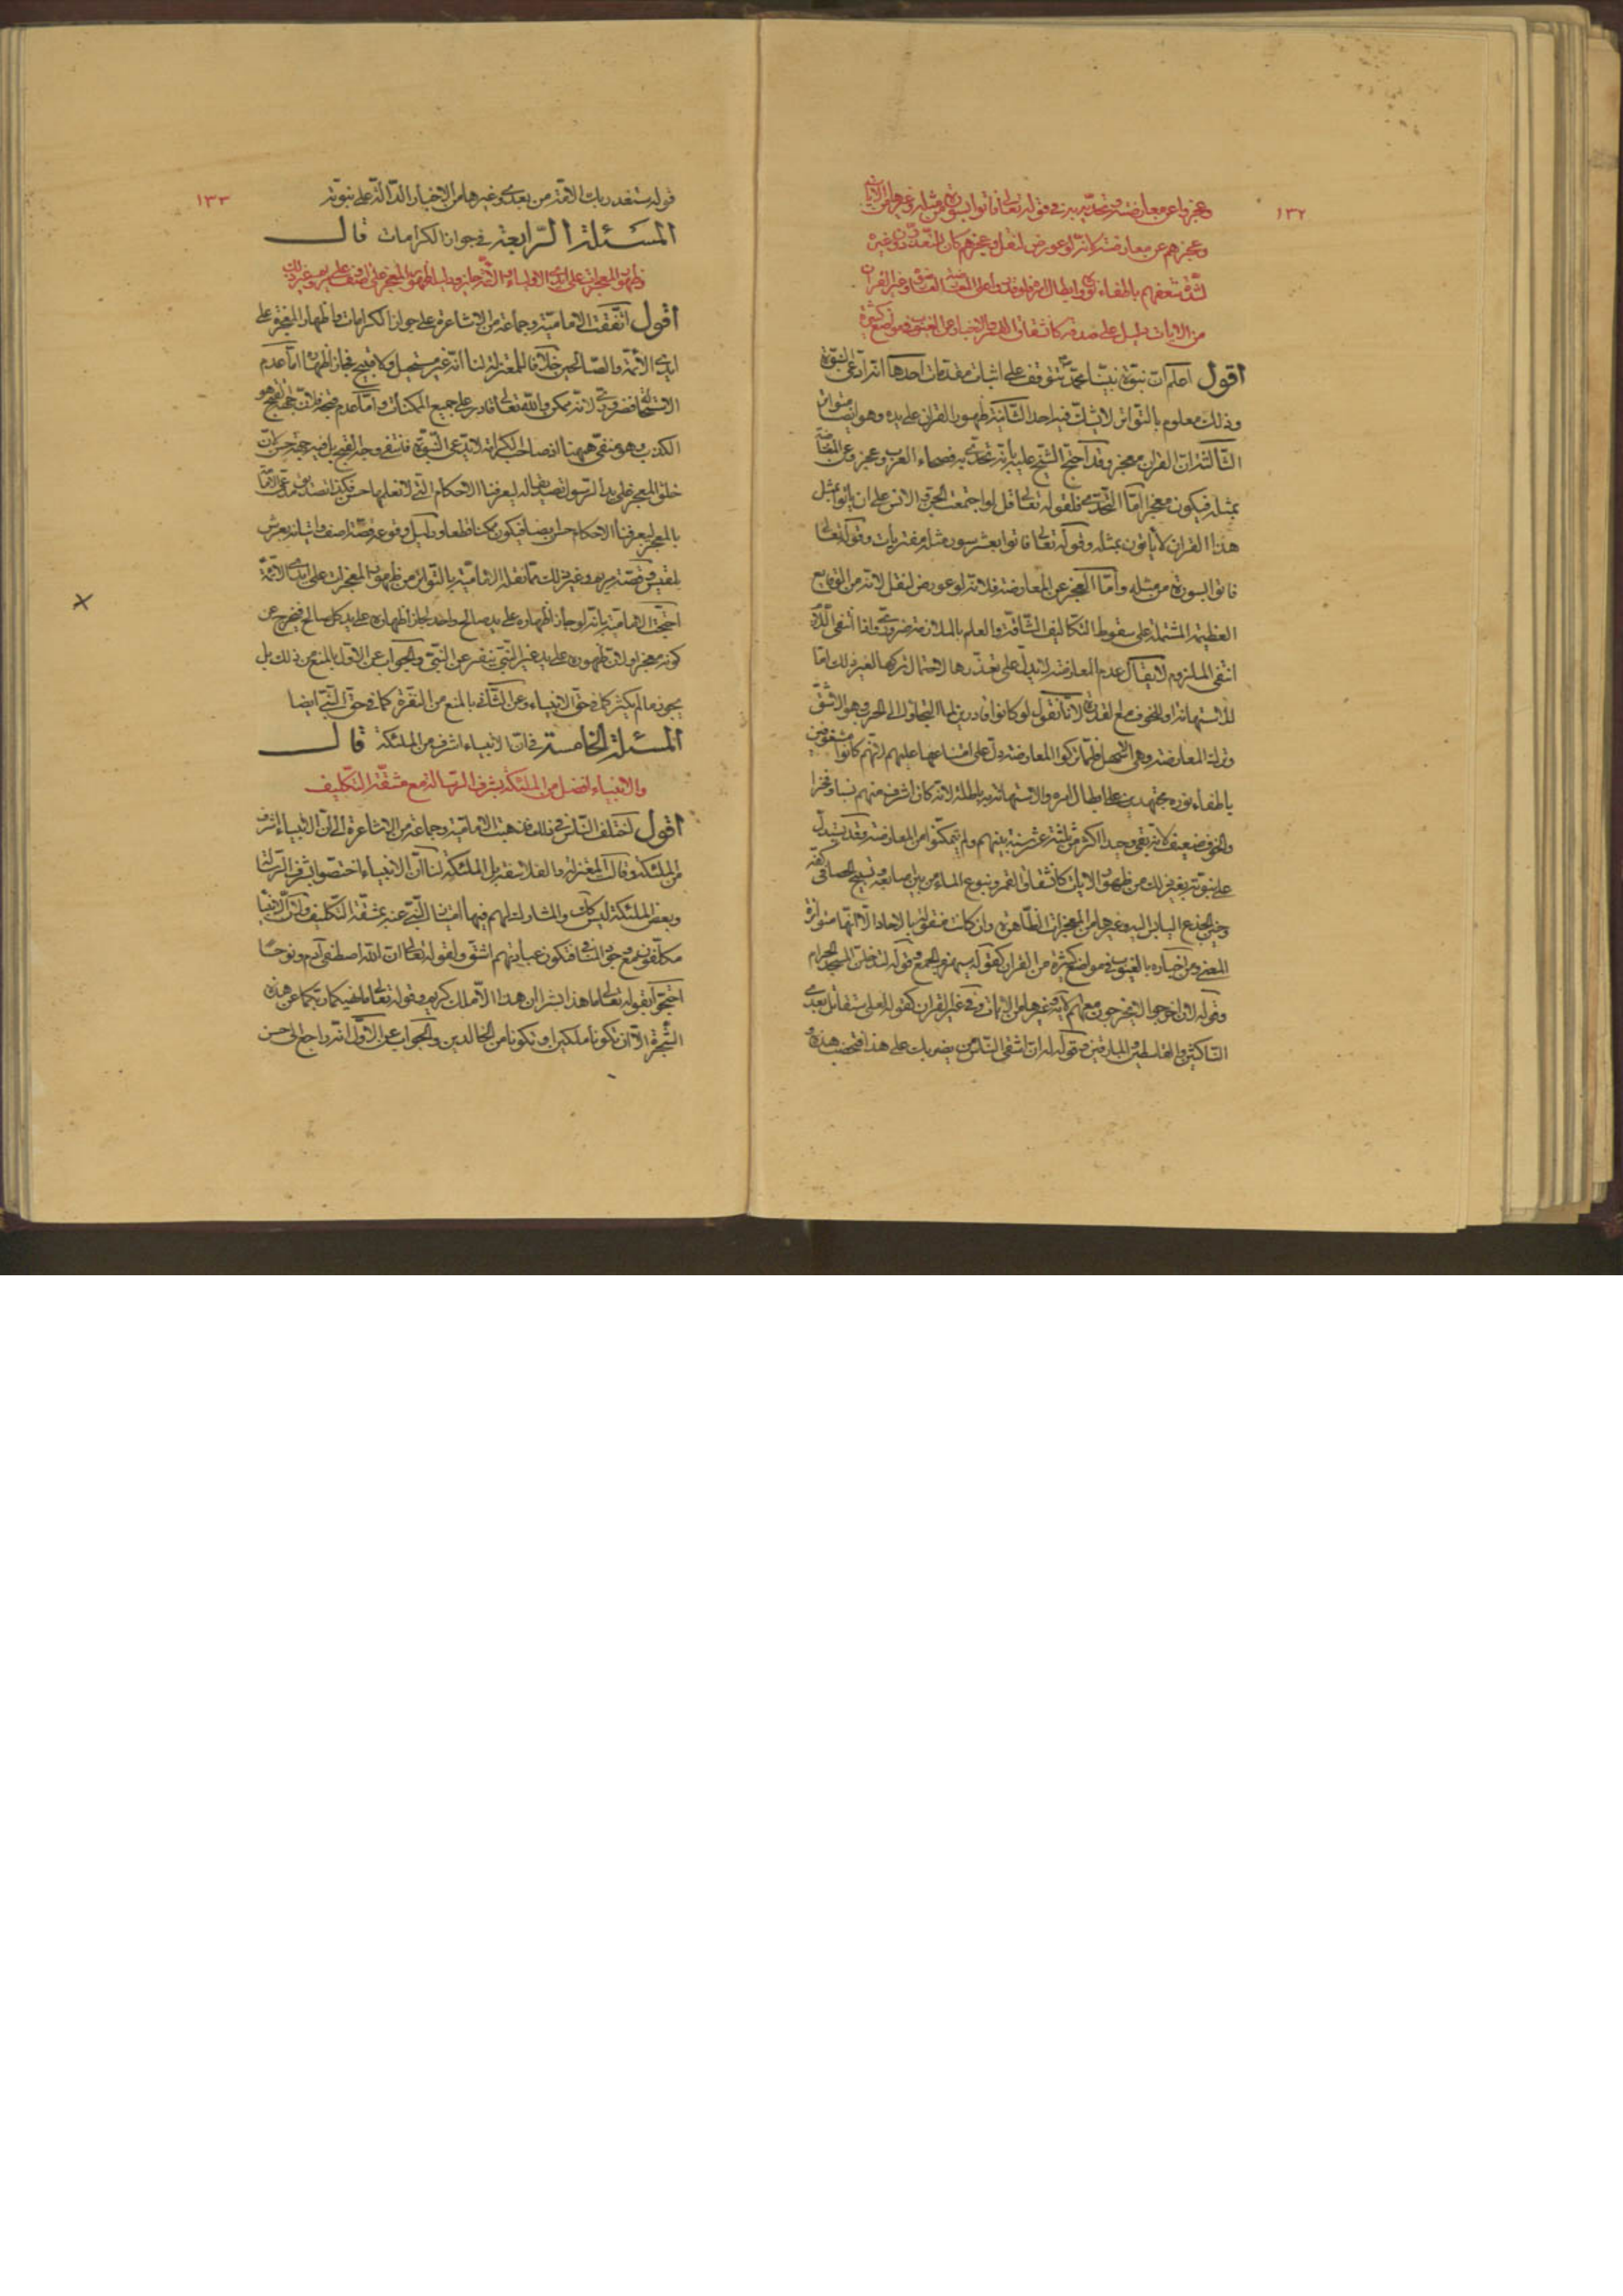 ١٣٢
وعجزوا عن معارضته وتحديه به في قوله تعالى فاتوا بسورة من مثله وغيرها من الايات
وعجزهم عن معارضته لانه لو عورض لنقل وعجزهم كان للتعذر
من الايات يدل على صدقه كانشقاق القمر والاخبار عن الغيوب في مواضع كثيرة
اقول اعلم ان نبوة نبينا محمد تتوقف على اثبات مقدمات احدها انه ادعى النبوة
وذلك معلوم بالتواتر لا يشك فيه احد الثانية ظهور القران على يده وهو ايضا متواتر
الثالثة ان القران معجز وقد احتج الشيخ عليه بانه تحدى به فصحاء العرب وعجزوا عن المعارضة
بمثله فيكون معجزا اما التحدي فلقوله تعالى قل لو اجتمعت الجن والانس على ان ياتوا بمثل
هذا القران لا ياتون بمثله وقوله تعالى فاتوا بعشر سور مثله مفتريات وقوله تعالى
فاتوا بسورة من مثله واما العجز عن المعارضة فلانه لو عورض لنقل لانه من الوقايع
العظيمة المشتملة على سقوط التكاليف الشاقة والعلم بالملازمة ضروري واذا انتفى اللازم
انتفى الملزوم لا يقال عدم المعارضة لا يدل على تعذرها لاحتمال تركها لغير ذلك اما
للاستهانة او للخوف مع القدرة لانا نقول لو كانوا قادرين لما التجاوا الى الحرب وهو الاشق
وترك المعارضة وهي الاسهل فلما تركوا المعارضة دل على امتناعها عليهم لانهم كانوا مشغوفين
باطفاء نوره مجتهدين على ابطال امره والاستهانة به باطلة لانه كان اشرف منهم نسبا وفخرا
والخوف ضعيف لانه بقي وحيدا اكثر من ثلثة عشر سنة بينهم ولم يتمكنوا من المعارضة وقد يستدل
على نبوته بغير ذلك من ظهور الايات كانشقاق القمر ونبوع الماء من بين اصابعه وتسبيح الحصا في كفه
وحنين الجذع اليابس اليه وغيرها من المعجزات الظاهرة وان كانت منقولة بالاحاد الا انها متواترة
المعنى ومن اخباره بالغيوب في مواضع كثيرة من القران كقوله سيهزم الجمع وقوله لتدخلن المسجد الحرام
وقوله لئن اخرجوا لا يخرجون معهم الاية وغيرها من الايات وفي غير القران كقوله لعلي ستقاتل بعدي
الناكثين والقاسطين والمارقين وقوله له ان اشقى الناس من يضربك على هذا فتخضب هذه و
١٣٣
قوله ستغدر بك الامة من بعدي وغيرها من الاخبار الدالة على نبوته
المسئلة الرابعة في جواز الكرامات قال
وظهور المعجزات على يد الاولياء والائمة جايز ودليله ظهور المعجز على اصف وعلى مريم وغير ذلك
اقول اتفقت الامامية وجماعة من الاشاعرة على جواز الكرامات واظهار المعجزة على
ايدي الائمة والصالحين خلافا للمعتزلة لنا انه غير مستحيل ولا قبيح فجاز اظهارها اما عدم
الاستحالة فضروري لانه ممكن والله تعالى قادر على جميع الممكنات واما عدم قبحه فلان جهة القبح هو
الكذب وهو منتفي ههنا اذ صاحب الكرامة لا يدعي النبوة فانتفى وجه القبح بل فيه جهة حسن لان
خلق المعجز على يد الرسول تصديقا له ليعرفنا الاحكام التي لا نعلمها حسن فكذا تصديق مدعي الامامة
بالمعجز ليعرفنا الاحكام حسن ايضا فيكون ممكنا قطعا ودليل وقوعه قصة اصف واتيانه بعرش
بلقيس وقصة مريم وغير ذلك مما نقله الامامية بالتواتر من ظهور المعجزات على ايدي الائمة
احتجت الامامية بانه لو جاز اظهاره على يد صالح واحد لجاز اظهاره على يد كل صالح فيخرج عن
كونه معجزا ولان ظهوره على يد غير النبي ينفر عن النبي والجواب عن الاول بالمنع من ذلك بل
يجوز ما لم يكثر كما في حق الانبياء وعن الثاني بالمنع من النفرة كما في حق النبي ايضا
المسئلة الخامسة في ان الانبياء اشرف من الملئكة قال
والانبياء افضل من الملئكة بشرف الرسالة مع مشقة التكليف
اقول اختلف الناس في ذلك فذهبت الامامية وجماعة من الاشاعرة الى ان الانبياء اشرف
من الملئكة وقالت المعتزلة والفلاسفة بل الملئكة لنا ان الانبياء اختصوا بشرف الرسالة
وبعض الملئكة ليس كذلك والمشارك لهم فيها امتاز النبي عنه بمشقة التكليف ولان الانبياء
مكلفون مع وجود المنافي فتكون عباداتهم اشق ولقوله تعالى ان الله اصطفى آدم ونوحا
احتجوا بقوله تعالى ما هذا بشرا ان هذا الا ملك كريم وقوله تعالى ما نهيكما ربكما عن هذه
الشجرة الا ان تكونا ملكين او تكونا من الخالدين والجواب عن الاول انه راجع الى حسن